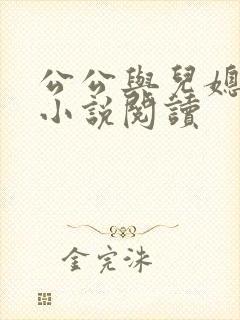 公公與兒媳
小說閱讀
金完洙